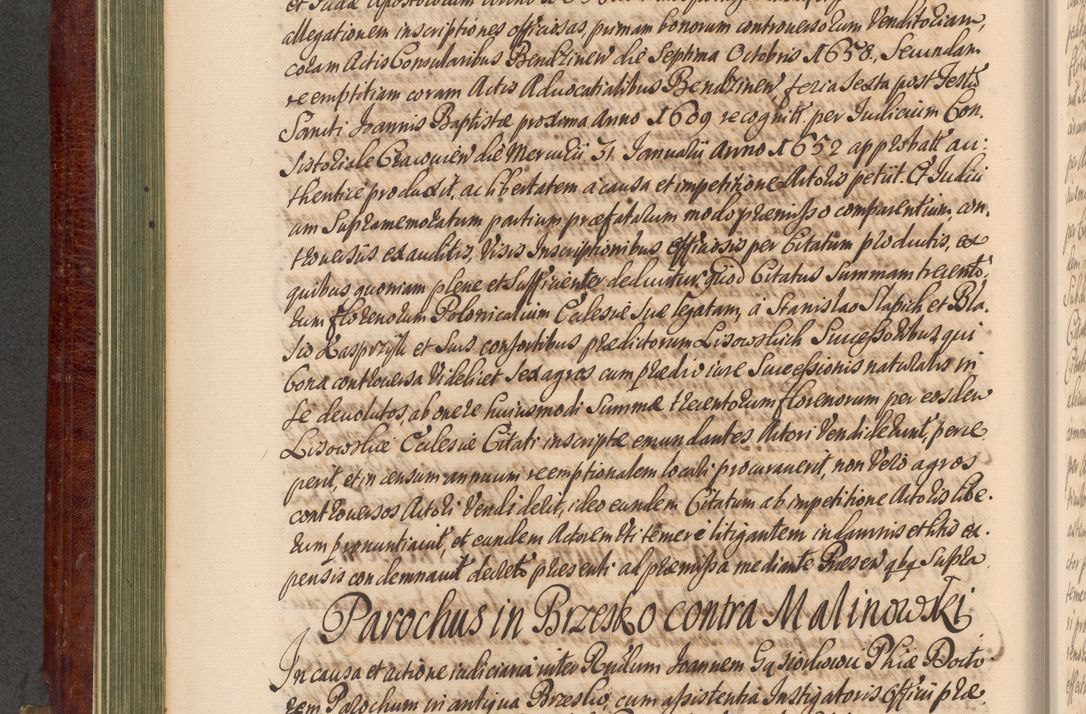 allegationem inscriptiones officiosas, primam bonorum controversorum Venditoriam,
coram Actis Consularibus Bendzinen̄ die Septima Octobris A 1658, Secundam
reemptitiam coram Actis Advocatialibus Bendzinen̄ feria sexta post Festū
Sancti Joannis Baptistæ proxima Anno A 1609 recognit. per Iudicium Con,,
sistoriale Cracovien̄ die Mercurii 31 Januarii Anno A 1652 approbatt au:
thentice produxit, ac libertatem a causa et impetitione Actoris petiit. Et Judici
um Supramemoratum partium præfatarum modo præmisso comparentium, con,
troversiis exauditis, Visis Inscriptionibus officiosis per Citatum productis, ex
quibus quoniam plene et sufficienter deducitur quod Citatus Summam trecento,,
rum florenorum Polonicalium Ecclesiæ suæ legatam, á Stanislao Slapich et Bla,
sio Kasprzyk et Suis consortibus prædictorum Lisowskich Successoribus, qui
bona controversa Videlicet Sex agros cum prædio iure Successionis naturalis in
se devolutos, ab onere huiusmodi Summæ trecentorum florenorum per eosdem
Lisowskie Ecclesiæ Citati inscriptæ emundantes Actori Vendiderunt, perce
perit, et in censum annuum reemptionalem locari procuraverit, non Vero agros
controversos Actori Vendiderit, ideo eundem Citatum ab impetitione Actoris libe,
rum pronuntiavit, et eundem Actorem Uti temere litigantem in damnis et litis ex,
pensis condemnavit decreto præsenti ad præmissa mediante Præsen̄ qbq Supra
Parochus in Brzesko contra Malinowski
In causa et actione iudiciaria inter Rndum Joannem Gąsiorkowic Phiæ Docto
rem Parochum in antiqua Brzesko, cum assistentia Instigatoris Officii præ,